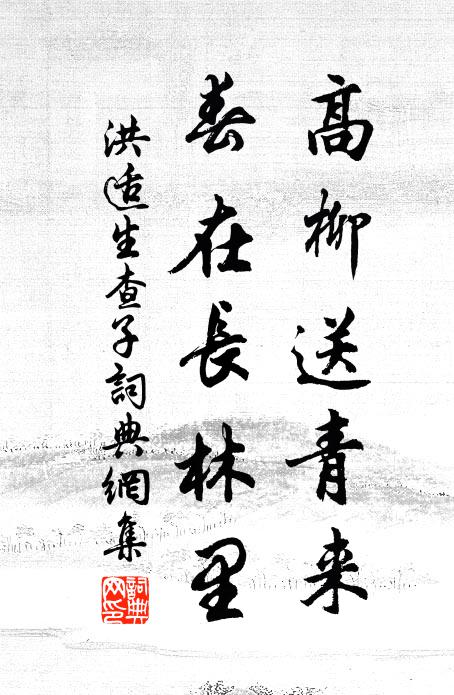 高柳送青来
春在長林里
洪适生查子詞典網集
詞典网印